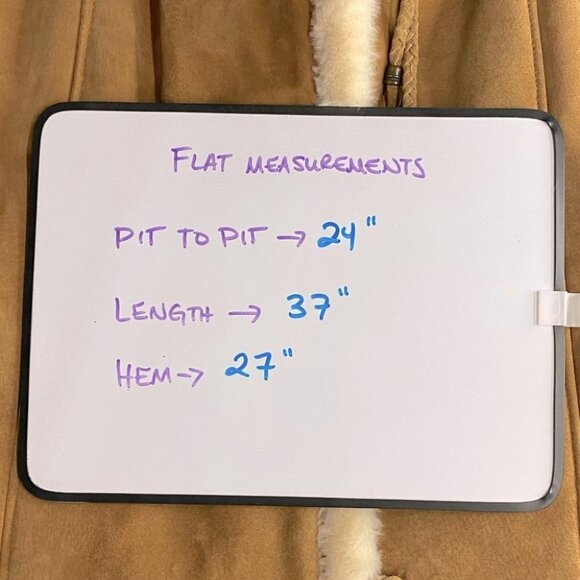 FLAT MEASUREMENTS
PIT TO PIT → 24"
LENGTH → 37"
HEM → 27"